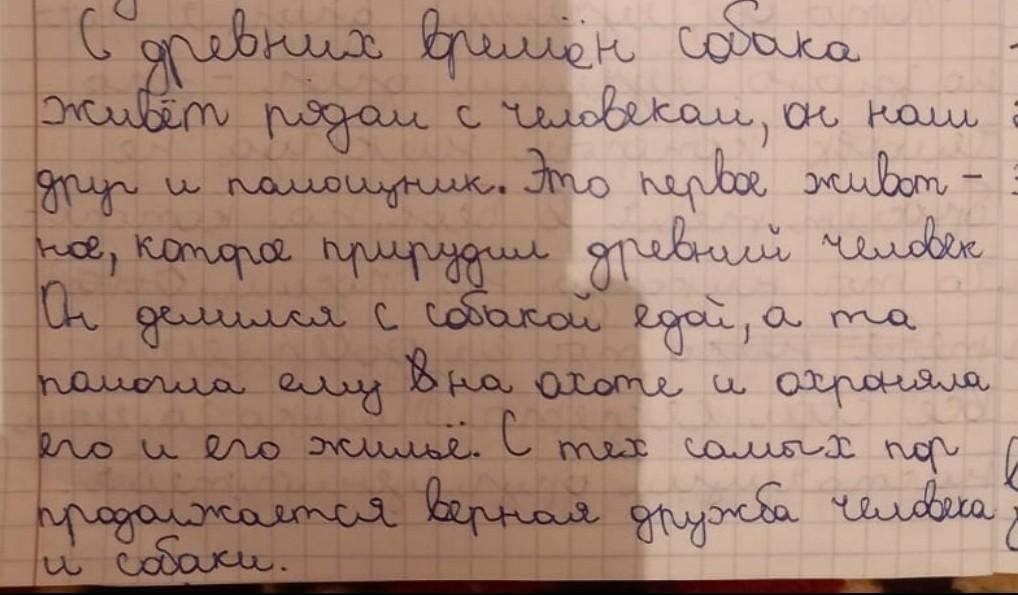 С древних времён собака
живёт рядом с человеком, он наш
друг и помощник. Это первое живот-
ное, которое прирудил древний человек
Он делился с собакой едой, а та
помогла ему в на охоте и охроняла
его и его жильё. С тех самых пор
продолжается верная дружба человека
и собаки.